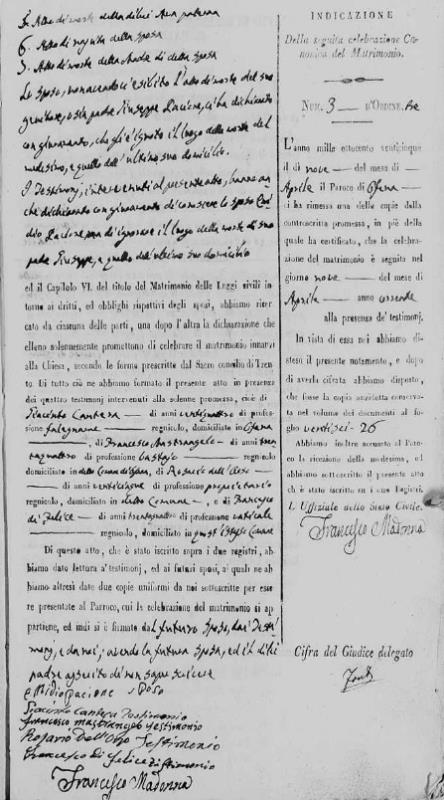 Atto di morte della di lei Ava paterna
6. Atto di nascita della sposa
7. Atto di morte della Madre di detta sposa
Lo sposo, non avendo esibito l'atto di morte del suo
genitore, ossia padre Giuseppe ha dichiarato
con giuramento, che gli è ignoto il luogo della morte del
medesimo, e quello dell'ultimo suo domicilio.
I Testimonj, intervenuti al presente atto, hanno an=
che dichiarato con giuramento di conoscere lo sposo
ma di ignorare il luogo della morte di suo
padre Giuseppe, e quello dell'ultimo suo domicilio
ed il Capitolo VI. del titolo del Matrimonio delle Leggi civili in
torno ai dritti, ed obblighi rispettivi degli sposi, abbiamo ricer
cato da ciascuna delle parti, una dopo l'altra la dichiarazione che
elleno solennemente promettono di celebrare il matrimonio innanzi
alla Chiesa, secondo le forme prescritte dal Sacro concilio di Trento
Di tutto ciò ne abbiamo formato il presente atto in presenza
dei quattro testimonj intervenuti alla solenne promessa, cioè di
Giacinto Cantera — di anni ventiquattro di profes-
sione falegname — regnicolo, domiciliato in Ofena
—, di Francesco Mastrangelo di anni tren
taquattro di professione Bastajo — regnicolo
domiciliato in detto Comune di Ofena, di Rosario dell'Orso —
— di anni venticinque di professione proprietario
regnicolo, domiciliato in detto Comune —, e di Francesco
di Felice — di anni trentaquattro di professione vaticale
— regnicolo, domiciliato in quest'istesso Comune
Di questo atto, che è stato iscritto sopra i due registri, ab
biamo dato lettura a' testimonj, ed ai futuri sposi, ai quali ne ab
biamo altresì date due copie uniformi da noi sottoscritte per es
sere presentate al Parroco, cui la celebrazione del matrimonio si ap
partiene, ed indi si è firmato dal futuro Sposo, dai Testi
monj, e da noi; avendo la futura sposa, ed il di lei
padre asserito di non saper scrivere
Sposo
Giacinto Cantera Testimonio
Francesco Mastrangelo Testimonio
Rosario Dell'Orso Testimonio
Francesco Di Felice Testimonio
Francesco Madonna
INDICAZIONE
Della seguita celebrazione Ca-
nonica del Matrimonio.
NUM. 3 — D'ORDINE
L'anno mille ottocento venticinque
il dì nove — del mese di
Aprile il Parroco di Ofena —
ci ha rimessa una delle copie dalla
controscritta promessa, in piè della
quale ha certificato, che la celebra-
zione del matrimonio è seguita nel
giorno nove — del mese di
Aprile — anno corrente
alla presenza de' testimonj.
In vista di essa noi abbiamo di-
steso il presente notamento, e dopo
di averla cifrata abbiamo disposto,
che fosse la copia anzidetta conserva-
ta nel volume dei documenti al fo-
glio ventisei - 26
Abbiamo inoltre accusato al Paro-
co la ricezione della medesima, ed
abbiamo sottoscritto il presente atto
ch'è stato iscritto su i due Registri.
L'Uffiziale dello Stato Civile.
Francesco Madonna
Cifra del Giudice delegato